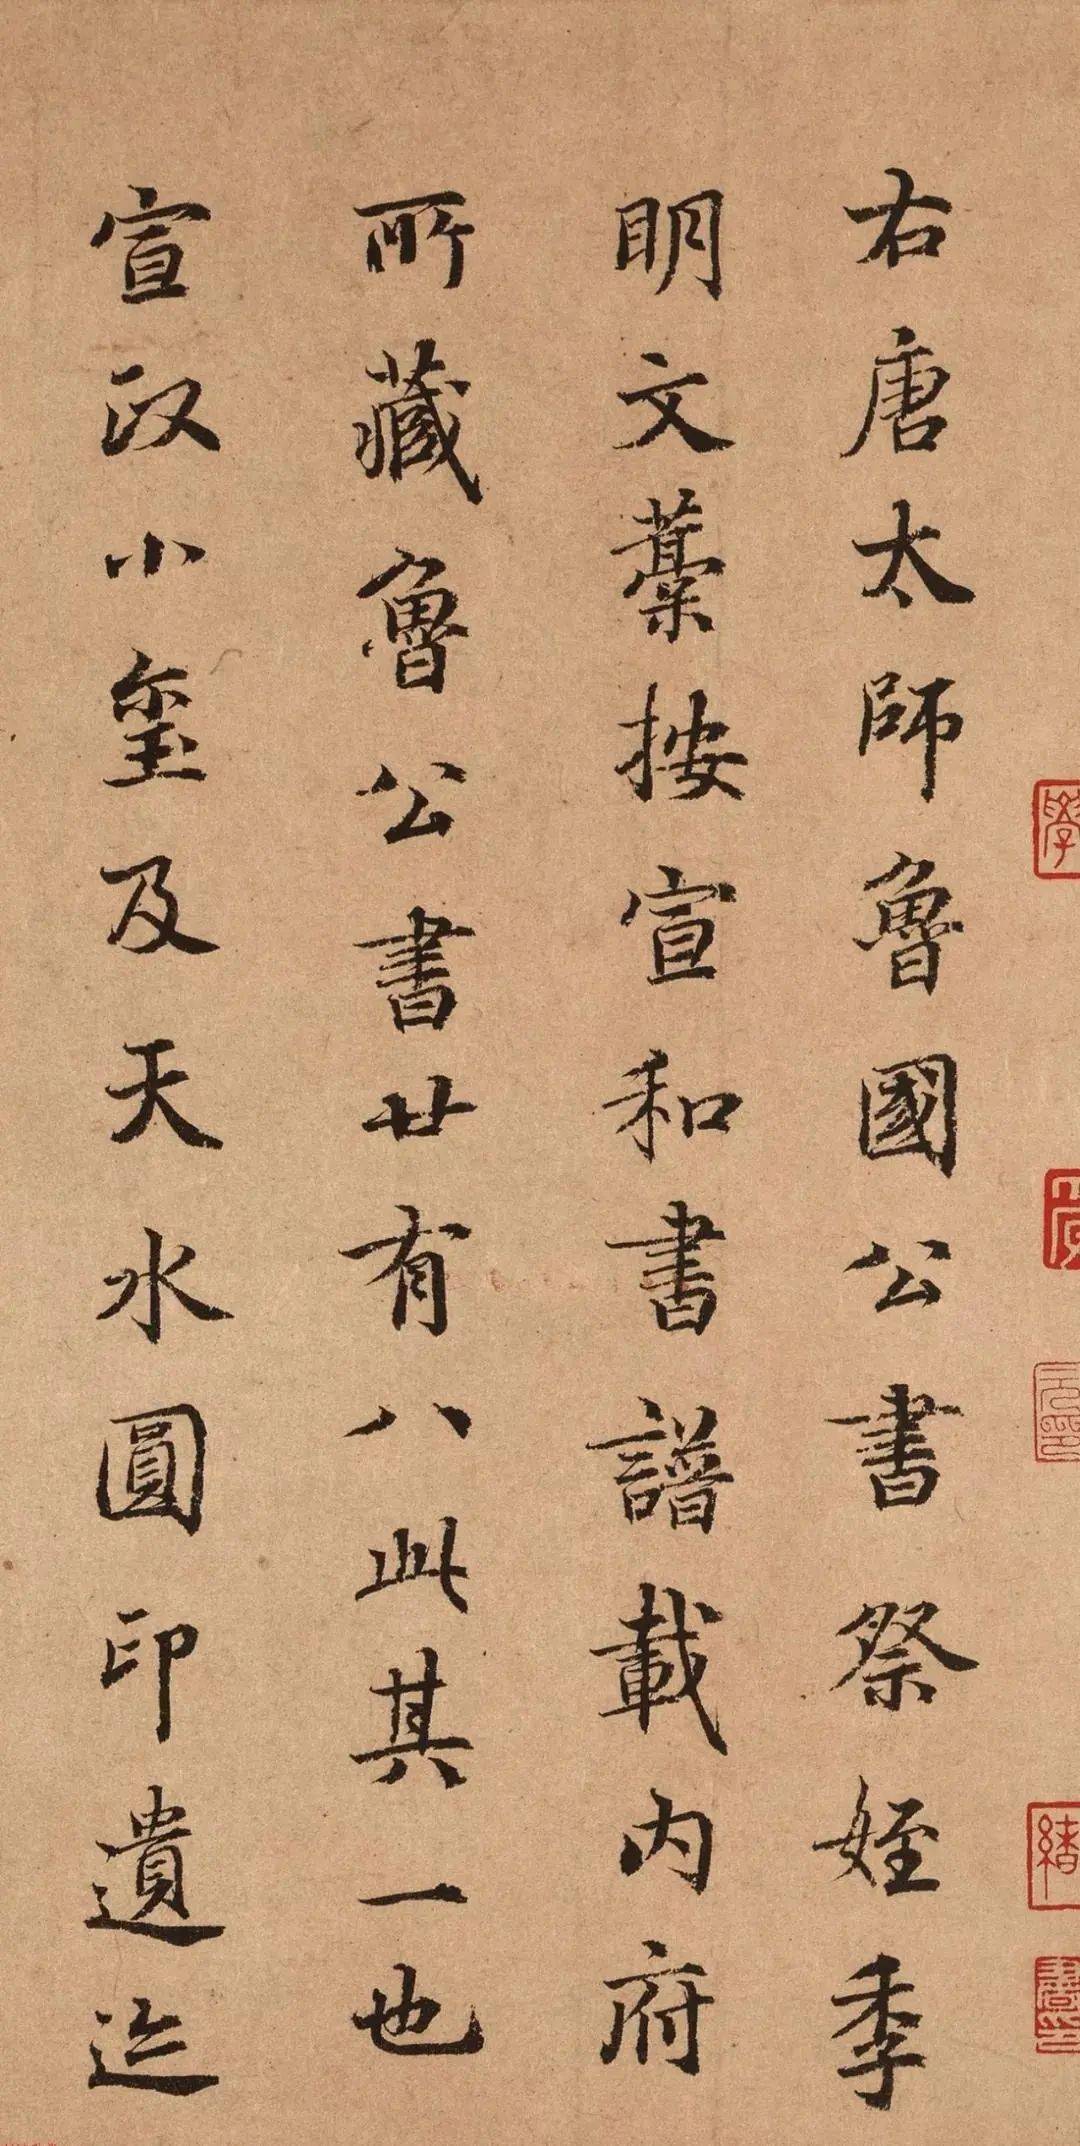 右唐太師魯國公書祭姪季
明文藁按宣和書譜載內府
所藏魯公書廿有八此其一也
宣政小璽及天水圓印遺迹